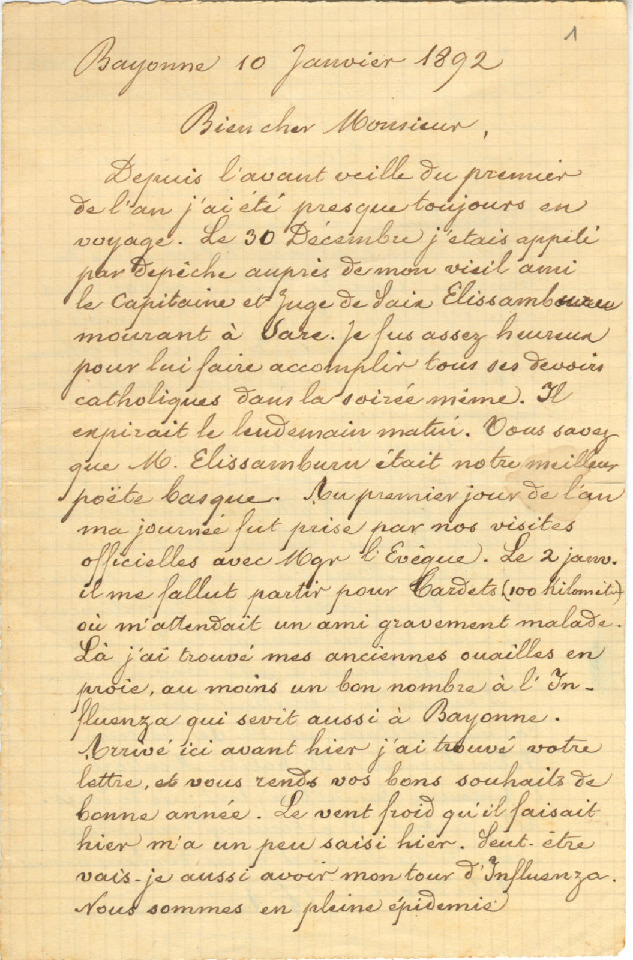 1
Bayonne 10 Janvier 1892
Bien cher Monsieur,
Depuis l'avant veille du premier
de l'an j'ai été presque toujours en
voyage. Le 30 Décembre j'étais appelé
par depêche auprès de mon vieil ami
le Capitaine et Juge de Paix Elissamboureu
mourant à Sare. Je fus assez heureux
pour lui faire accomplir tous ses devoirs
catholiques dans la soirée même. Il
expirait le lendemain matin. Vous savez
que M. Elissamburu était notre meilleur
poëte basque. Au premier jour de l'an
ma journée fut prise par nos visites
officielles avec Mgr l'Evêque. Le 2 janv.
il me fallut partir pour Tardets (100 kilomèt.)
où m'attendait un ami gravement malade.
Là j'ai trouvé mes anciennes ouailles en
proie, au moins un bon nombre à l'In-
fluenza qui sevit aussi à Bayonne.
Arrivé ici avant hier j'ai trouvé votre
lettre, et vous rends vos bons souhaits de
bonne année. Le vent froid qu'il faisait
hier m'a un peu saisi hier. Peut-être
vais-je aussi avoir mon tour d'Influenza.
Nous sommes en pleine épidemie